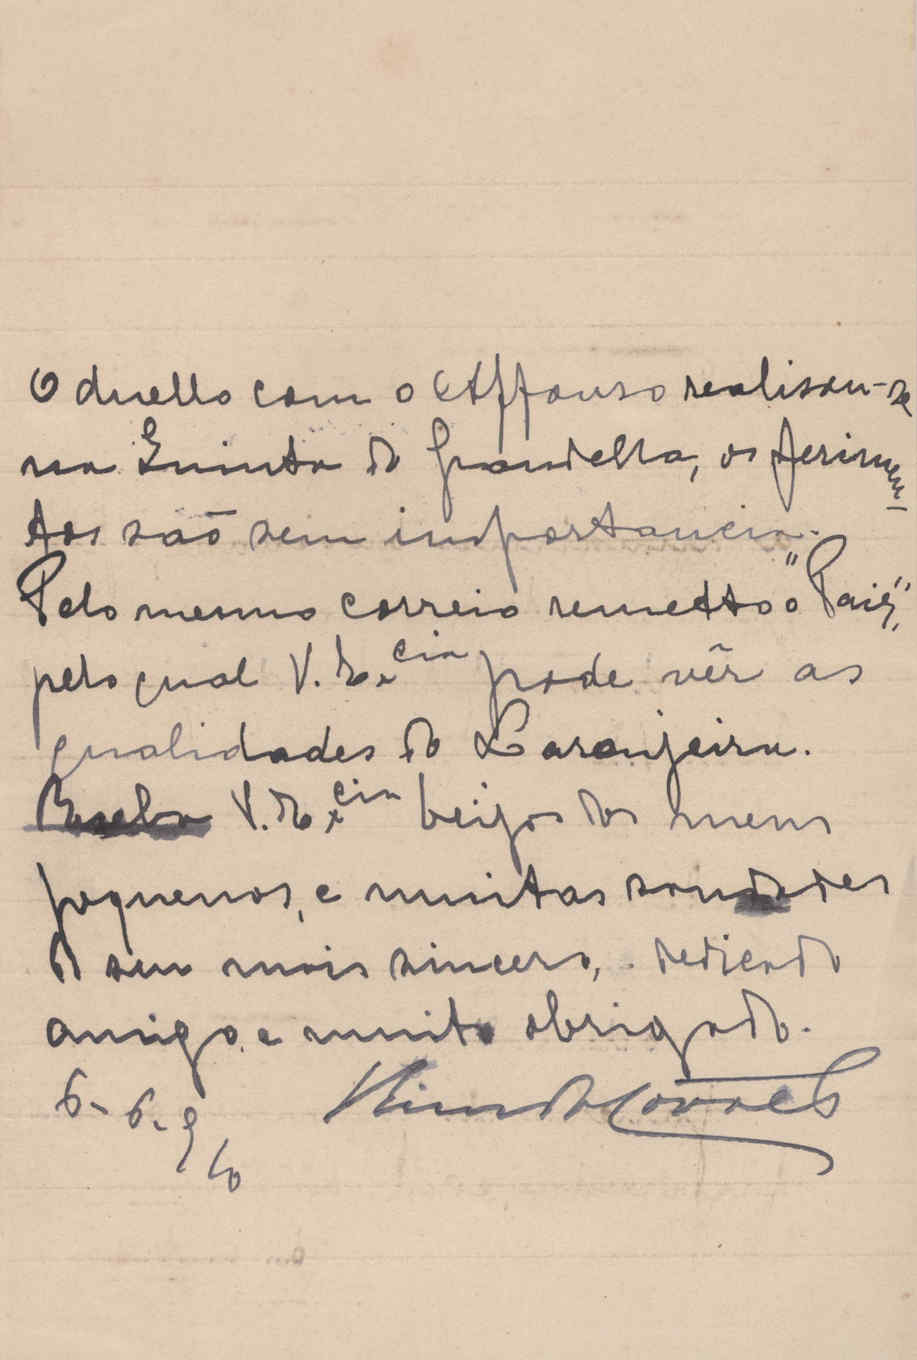 O duello com o Affonso realisou-se
na Quinta do Grandella, os ferimen-
tos são sem importancia.
Pelo mesmo correio remetto "o Paiz",
pelo qual V. Excia pode vêr as
qualidades do Laranjeira.
Receba V. Excia beijos dos meus
pequenos, e muitas saudades
do seu mais sincero, dedicado
amigo e muito obrigado.
6-6-910